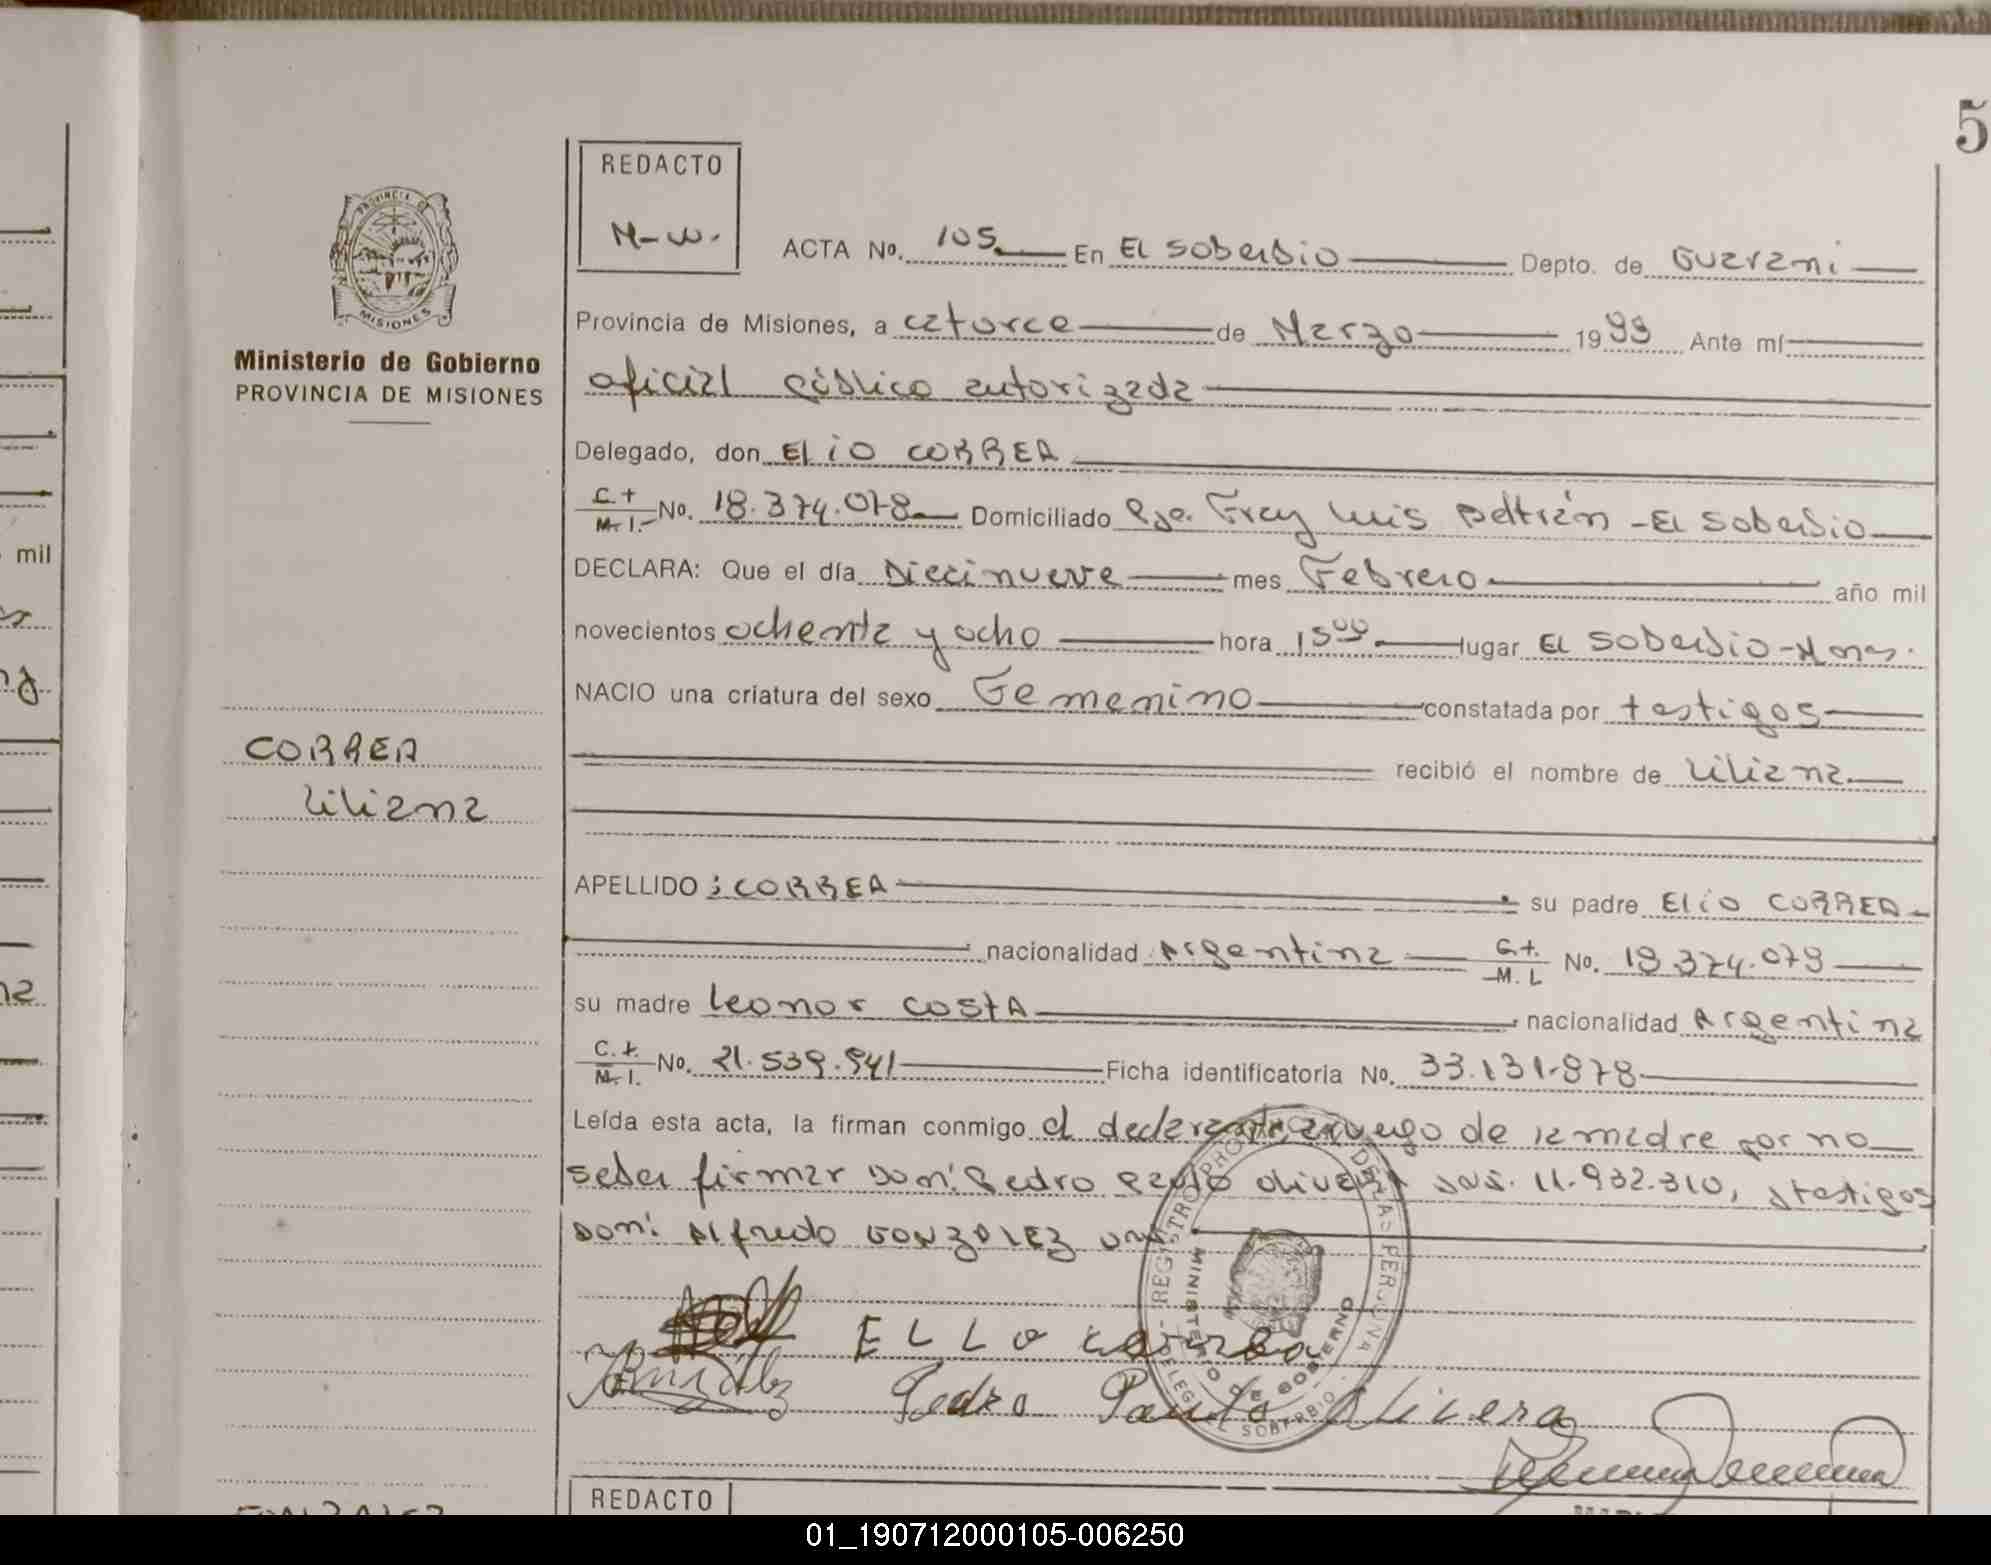 5
REDACTO
M-W.
ACTA No. 105 En El Soberbio Depto. de Guarani
Provincia de Misiones, a catorce de Marzo 1989 Ante mí
oficial público autorizada
Delegado, don Elio CORREA
C.I. M.I. No. 18.374.078 Domiciliado Pje. Fray Luis Beltrán - El Soberbio
DECLARA: Que el día Diecinueve mes Febrero año mil
novecientos ochenta y ocho hora 15 00 lugar El Soberbio - Mnes.
NACIO una criatura del sexo Femenino constatada por testigos
recibió el nombre de Liliana
APELLIDO : CORREA su padre Elio CORREA
nacionalidad Argentina C.I. M.I. No. 18.374.078
su madre Leonor COSTA nacionalidad Argentina
C.I. M.I. No. 21.539.941 Ficha identificatoria No. 33.131.878
Leída esta acta, la firman conmigo el declarante, a ruego de la madre por no
saber firmar Don: Pedro Paulo Olivera 11.932.310, y testigos
Don: Alfredo GONZALEZ
ELLO Correa
González Pedro Paulo Olivera
PROVINCIA DE
MISIONES
Ministerio de Gobierno
PROVINCIA DE MISIONES
CORREA
Liliana
REGISTRO PROVINCIAL DE LAS PERSONAS
MINISTERIO DE GOBIERNO
SOBERBIO
REDACTO
mil
01_190712000105-006250